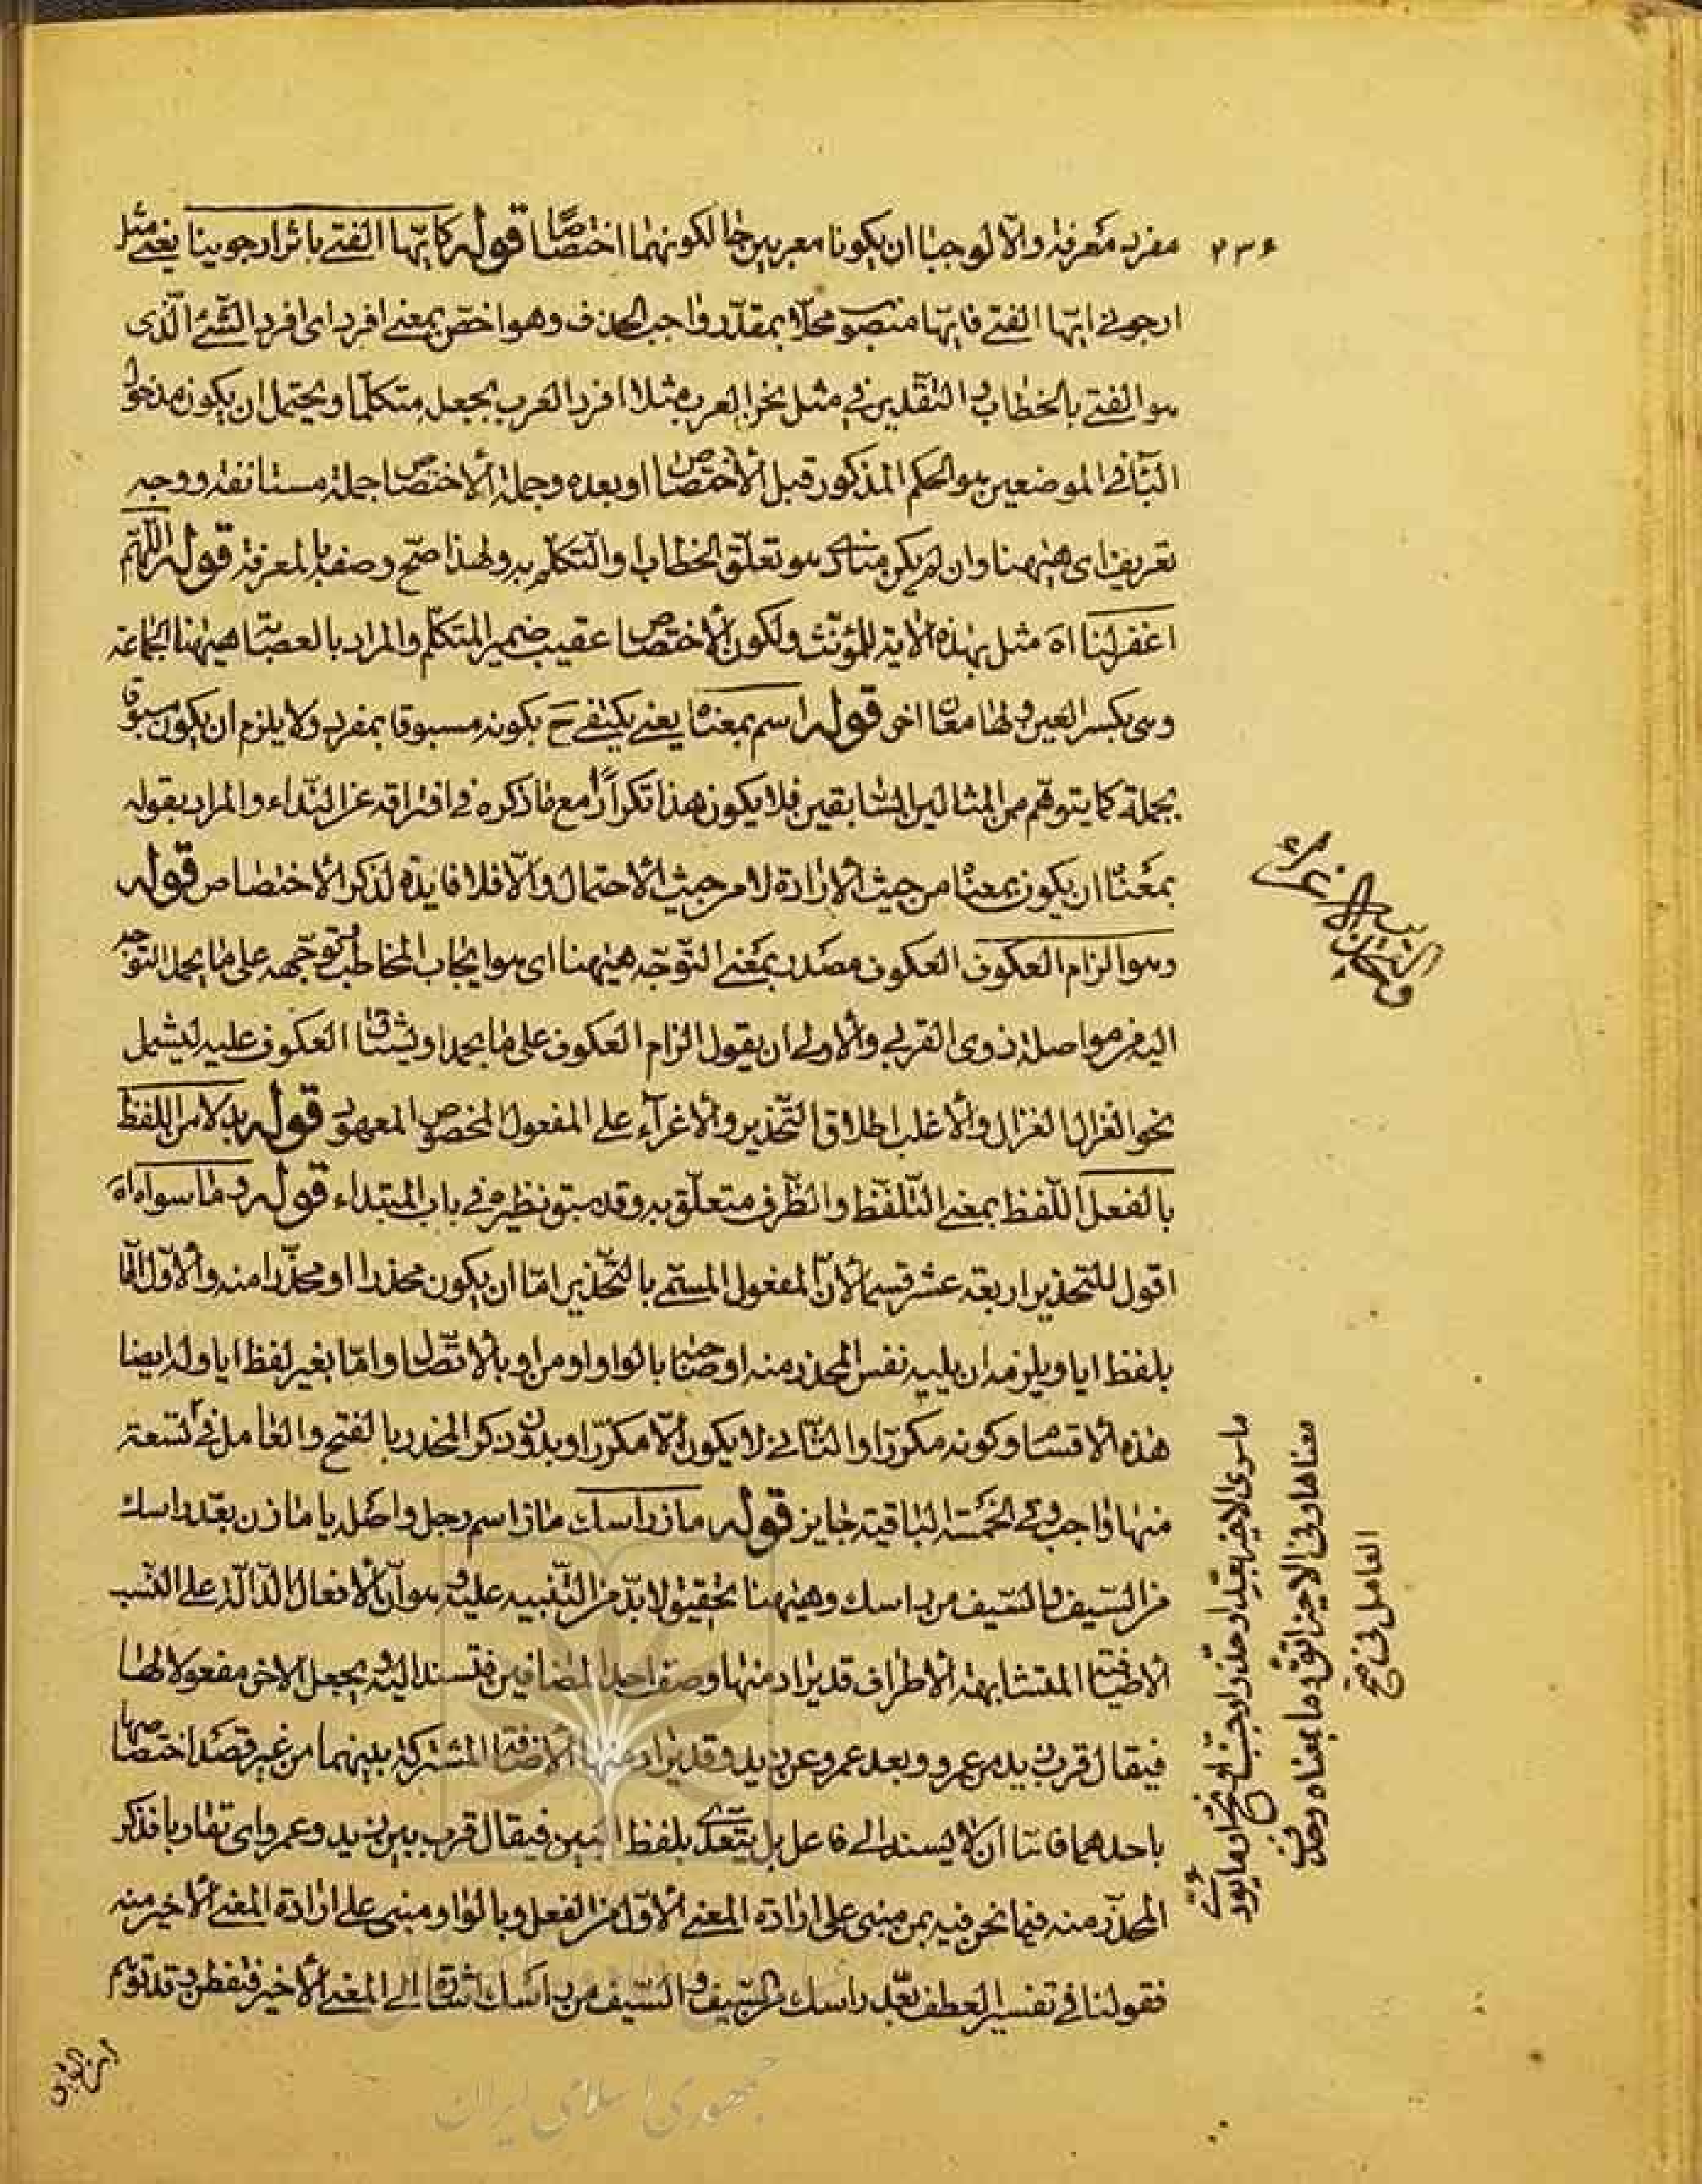 ٢٣۶
مفرد معرفة والا لوجبا ان يكونا معربين حالكونهما اختصاصا قوله كايها الفتى باثر ارجونيا يعنى مثل
ارجونى ايها الفتى فايها منصوب محلا بمقدر واجب الحذف وهو اخص بمعنى افرد اى افرد الشئ الذى
هو الفتى بالخطاب والتقدير فى مثل نحن العرب مثلا افرد العرب بجعله متكلما ويحتمل ان يكون مدخول
الباء فى الموضعين هو الحكم المذكور قبل الاختصاص او بعده وجملة الاختصاص جملة مستانفة ووجه
تعريف اى هيهنا وان لم يكن مناد هو تعلق الخطاب او التكلم به ولهذا صح وصفه بالمعرفة قوله اللهم
اغفر لنا اه مثل بهذه الاية للمؤنث ولكون الاختصاص عقيب ضمير المتكلم والمراد بالعصابة هيهنا الجماعة
وهى بكسر العين ولها معان اخر قوله اسم بمعناه يعنى يكتفى ح بكونه مسبوقا بمفرد ولا يلزم ان يكون مسبوقا
بجملة كما يتوهم من المثالين السابقين فلا يكون هذا تكرارا مع ما ذكره فى افتراقه عن النداء والمراد بقوله
بمعناه ان يكون بمعناه من حيث الارادة لا من حيث الاحتمال والا فلا فايدة لذكر الاختصاص قوله
وهو الزام العكوف العكوف مصدر بمعنى التوجه هيهنا اى هو ايجاب المخاطب توجهه على ما يحمد التوجه
اليه من مواصلة ذوى القربى والاولى ان يقول الزام العكوف على ما يحمد او يشتاق العكوف عليه ليشمل
نحو الغزال الغزال والاغلب اطلاق التحذير والاغراء على المفعول المخصوص المعهود قوله بدلا من اللفظ
بالفعل اللفظ بمعنى التلفظ والظرف متعلق به وقد سبق نظيره فى باب المبتداء قوله وما سواه اه
اقول للتحذير اربعة عشر قسما لان المفعول المسمى بالتحذير اما ان يكون محذرا او محذرا منه والاول اما
بلفظ ايا ويلزمه ان يليه نفس المحذر منه او صاحبها بالواو او من او بالاتصال واما بغير لفظ ايا وله ايضا
هذه الاقسام وكونه مكررا والثانى لا يكون الا مكررا او بدون ذكر المحذر بالفتح والعامل فى تسعة
منها واجب وفى الخمسة الباقية جايز قوله ماز راسك ماز اسم رجل واصله يا مازن بعد راسك
من السيف والسيف من راسك وهيهنا تحقيق لا بد من التنبيه عليه وهو ان الافعال الدالة على النسب
الاضافية المتشابهة الاطراف قد يراد منها وصف احد المضافين فتسند اليه ويجعل الاخر مفعولا لها
فيقال قرب زيد من عمرو وبعد عمرو عن زيد وقد يراد منها الاضافة المشتركة بينهما من غير قصد اختصاصها
باحدهما فاما ان لا يسند الى فاعل بل يتعدى بلفظ البين فيقال قرب بين زيد وعمرو اى تقاربا فذكر
المحذر منه فيما نحن فيه بمن مبنى على ارادة المعنى الاول من الفعل وبالواو مبنى على ارادة المعنى الاخير منه
فقولنا فى تفسير العطف بعد راسك من السيف والسيف من راسك اشارة الى المعنى الاخير فتفطن وقد توهم
ما سوى الاخير بعد او حذر او جنب
معناها وفى الاخير اتق وما بمعناه وحذف
العامل فى